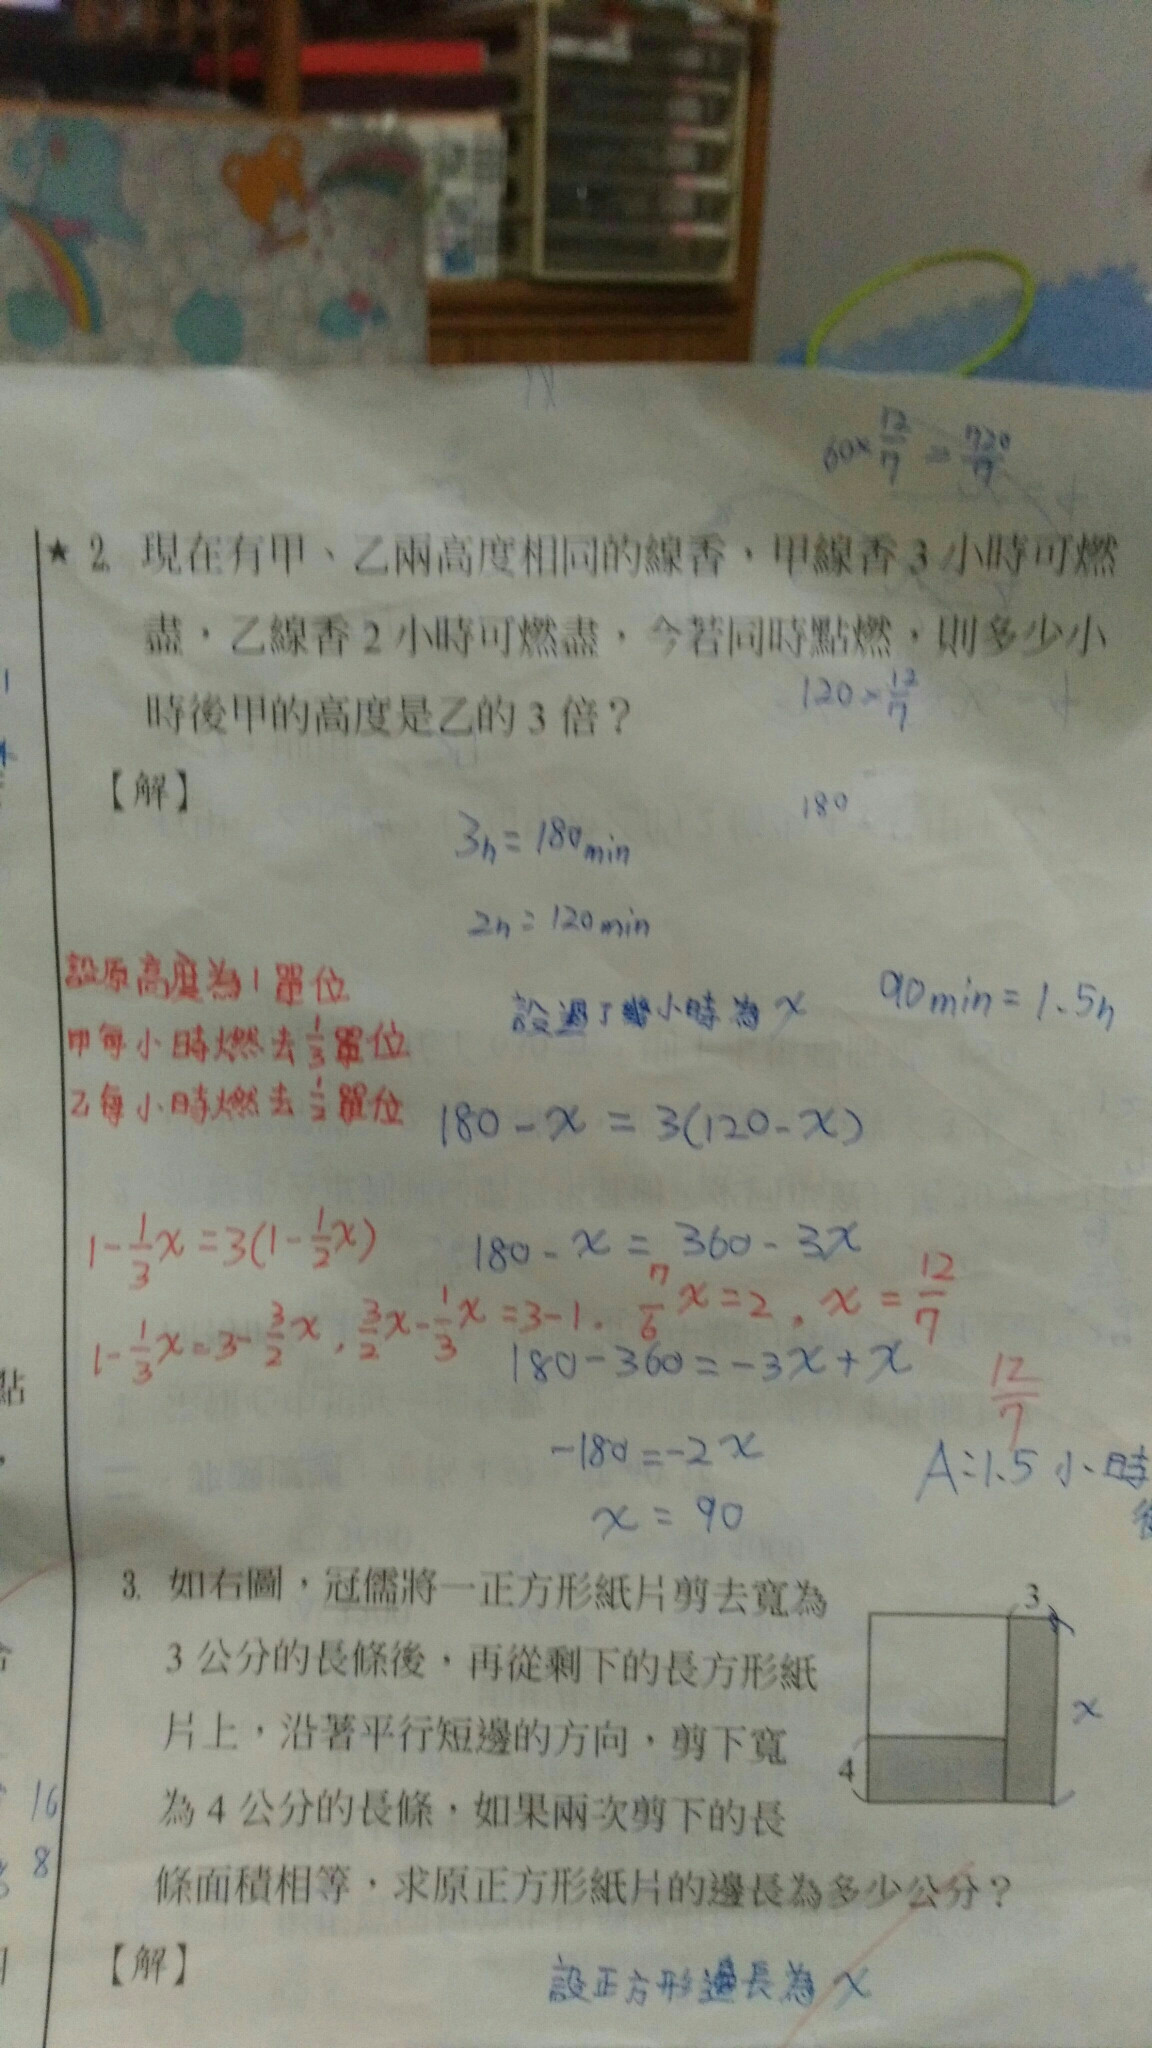 60×12/7=720/7
★ 2. 現在有甲、乙兩高度相同的線香，甲線香 3 小時可燃
盡，乙線香 2 小時可燃盡，今若同時點燃，則多少小
時後甲的高度是乙的 3 倍？
120×12/7
【解】
180
3h=180min
2h=120min
設原高度為1單位
甲每小時燃去1/3單位
乙每小時燃去1/2單位
設過了幾小時為x
90min=1.5h
180-x=3(120-x)
1-1/3x=3(1-1/2x)
180-x=360-3x
1-1/3x=3-3/2x，3/2x-1/3x=3-1. 7/6x=2，x=12/7
180-360=-3x+x
12/7
-180=-2x
A:1.5小時
x=90
3. 如右圖，冠儒將一正方形紙片剪去寬為
3 公分的長條後，再從剩下的長方形紙
片上，沿著平行短邊的方向，剪下寬
為 4 公分的長條，如果兩次剪下的長
條面積相等，求原正方形紙片的邊長為多少公分？
3
x
4
【解】
設正方形邊長為x
點
16
8